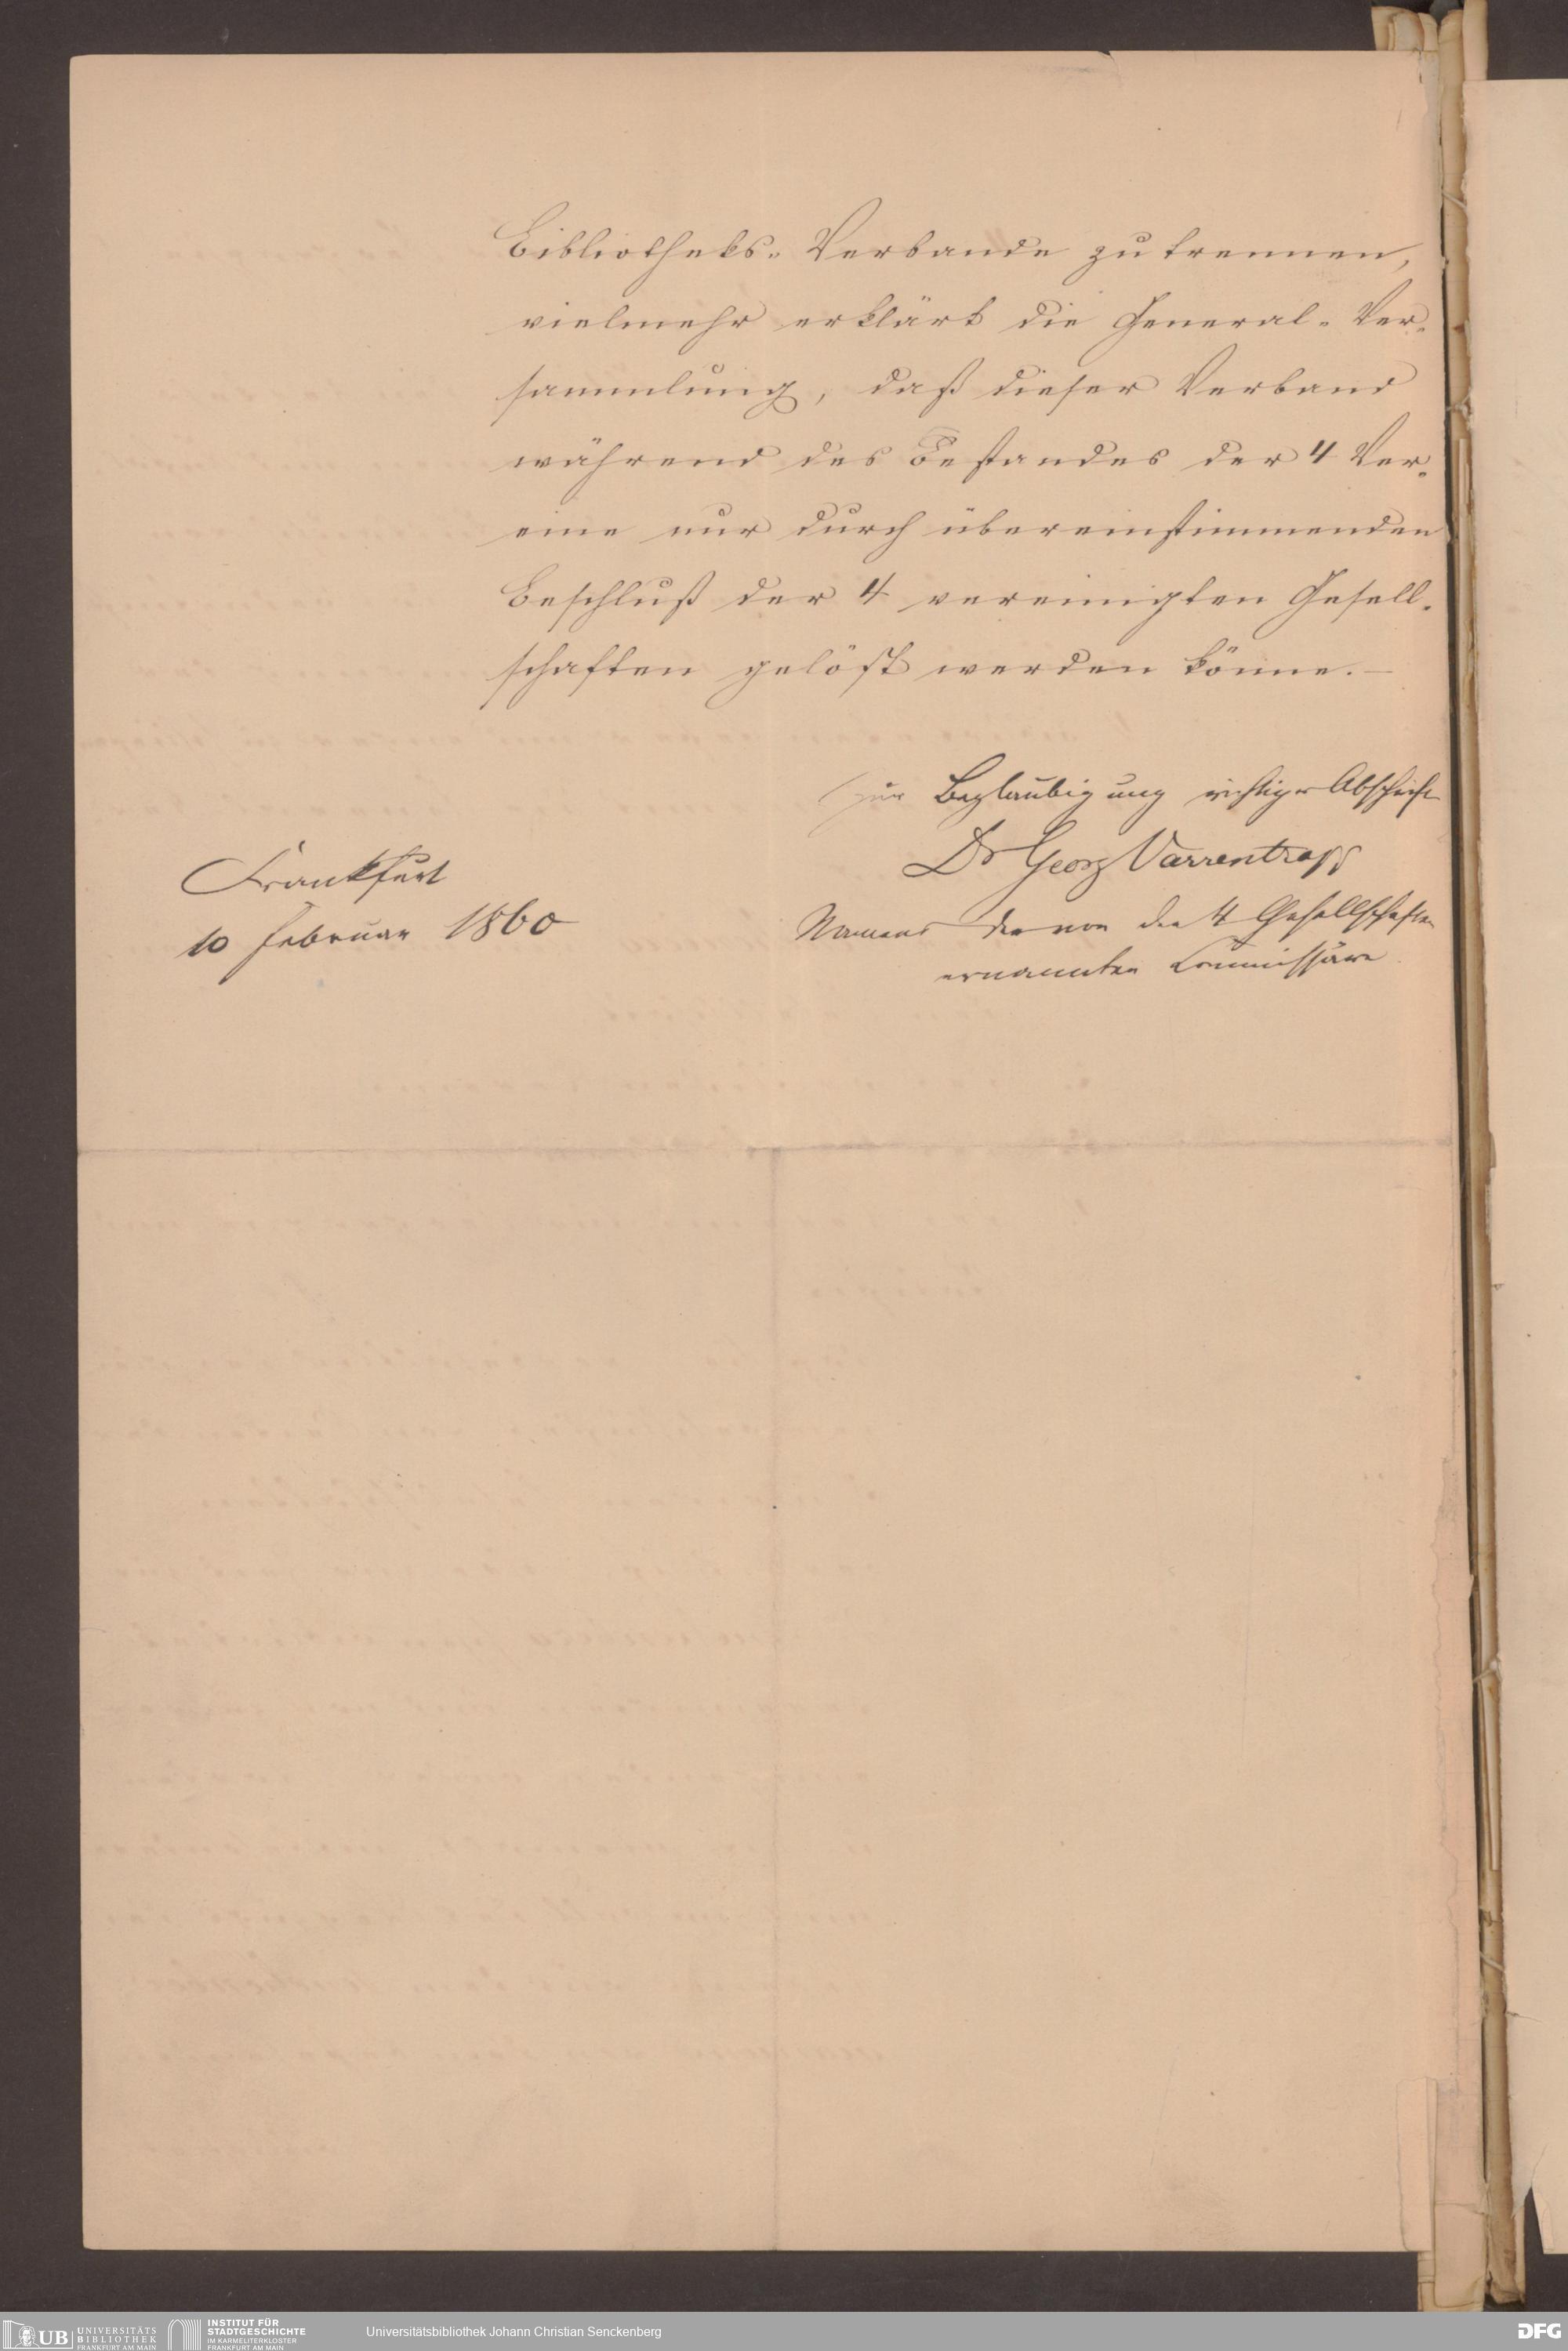 Bibliotheks-Verbande zu trennen,
vielmehr erklärt die General-Ver-
sammlung, daß dieser Verband
während des Bestandes der 4 Ver-
eine nur durch übereinstimmenden
Beschluß der 4 vereinigten Gesell-
schaften gelöst werden könne. —
Zur Beglaubigung richtiger Abschrift
Dr Georg Varrentrapp
Frankfurt
10 Februar 1860
Namens der von den 4 Gesellschaften
ernannten Commissäre
UB UNIVERSITÄTS
BIBLIOTHEK
FRANKFURT AM MAIN
INSTITUT FÜR
STADTGESCHICHTE
IM KARMELITERKLOSTER
FRANKFURT AM MAIN
Universitätsbibliothek Johann Christian Senckenberg
DFG